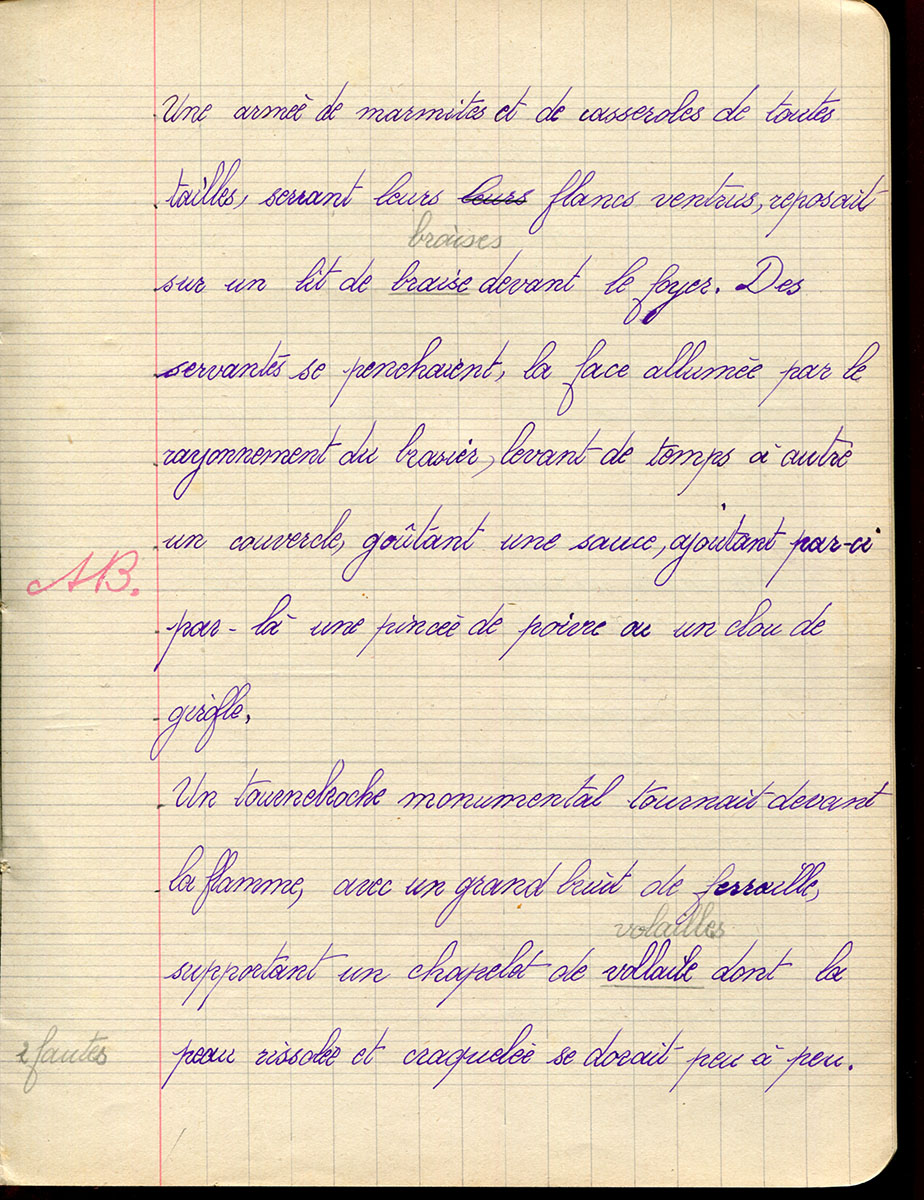 Une armée de marmites et de casseroles de toutes
tailles, serrant leurs leurs flancs ventrus, reposait
braises
sur un lit de braise devant le foyer. Des
servantes se penchaient, la face allumée par le
rayonnement du brasier, levant de temps à autre
un couvercle, goûtant une sauce, ajoutant par-ci
AB.
par-là une pincée de poivre ou un clou de
girofle.
Un tournebroche monumental tournait devant
la flamme, avec un grand bruit de ferraille,
volailles
supportant un chapelet de vollaile dont la
2 fautes
peau rissolée et craquelée se dorait peu à peu.